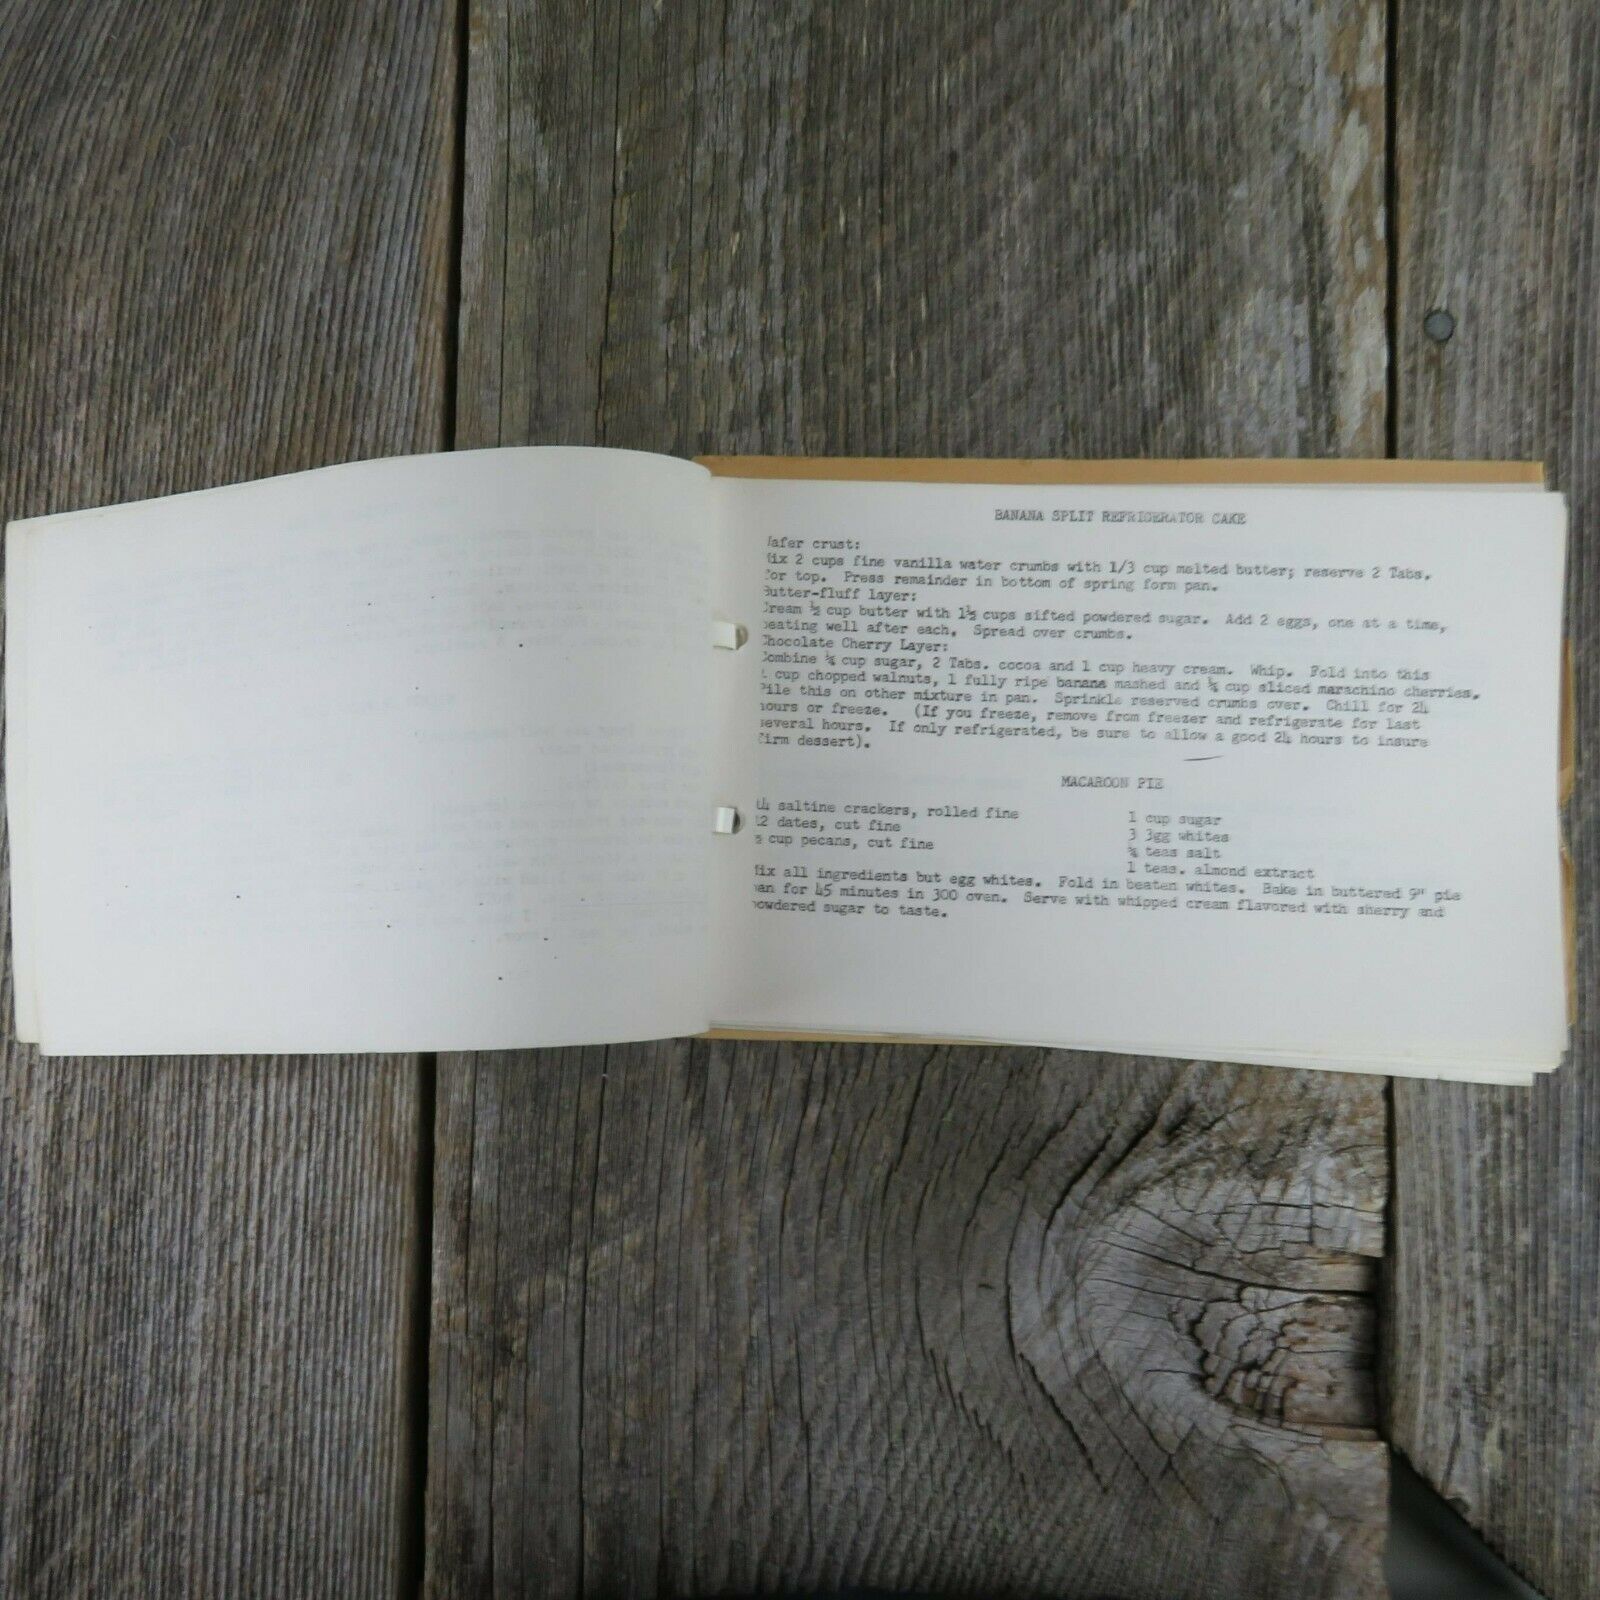 BANANA SPLIT REFRIGERATOR CAKE
Wafer crust:
Mix 2 cups fine vanilla water crumbs with 1/3 cup melted butter; reserve 2 Tabs.
for top. Press remainder in bottom of spring form pan.
Butter-fluff layer:
Cream ½ cup butter with 1½ cups sifted powdered sugar. Add 2 eggs, one at a time,
beating well after each. Spread over crumbs.
Chocolate Cherry Layer:
Combine ¼ cup sugar, 2 Tabs. cocoa and 1 cup heavy cream. Whip. Fold into this
1 cup chopped walnuts, 1 fully ripe banana mashed and ¼ cup sliced marachino cherries.
Pile this on other mixture in pan. Sprinkle reserved crumbs over. Chill for 24
hours or freeze. (If you freeze, remove from freezer and refrigerate for last
several hours. If only refrigerated, be sure to allow a good 24 hours to insure
firm dessert).
MACAROON PIE
14 saltine crackers, rolled fine 1 cup sugar
12 dates, cut fine 3 3gg whites
½ cup pecans, cut fine ¼ teas salt
1 teas. almond extract
Mix all ingredients but egg whites. Fold in beaten whites. Bake in buttered 9" pie
pan for 45 minutes in 300 oven. Serve with whipped cream flavored with sherry and
powdered sugar to taste.